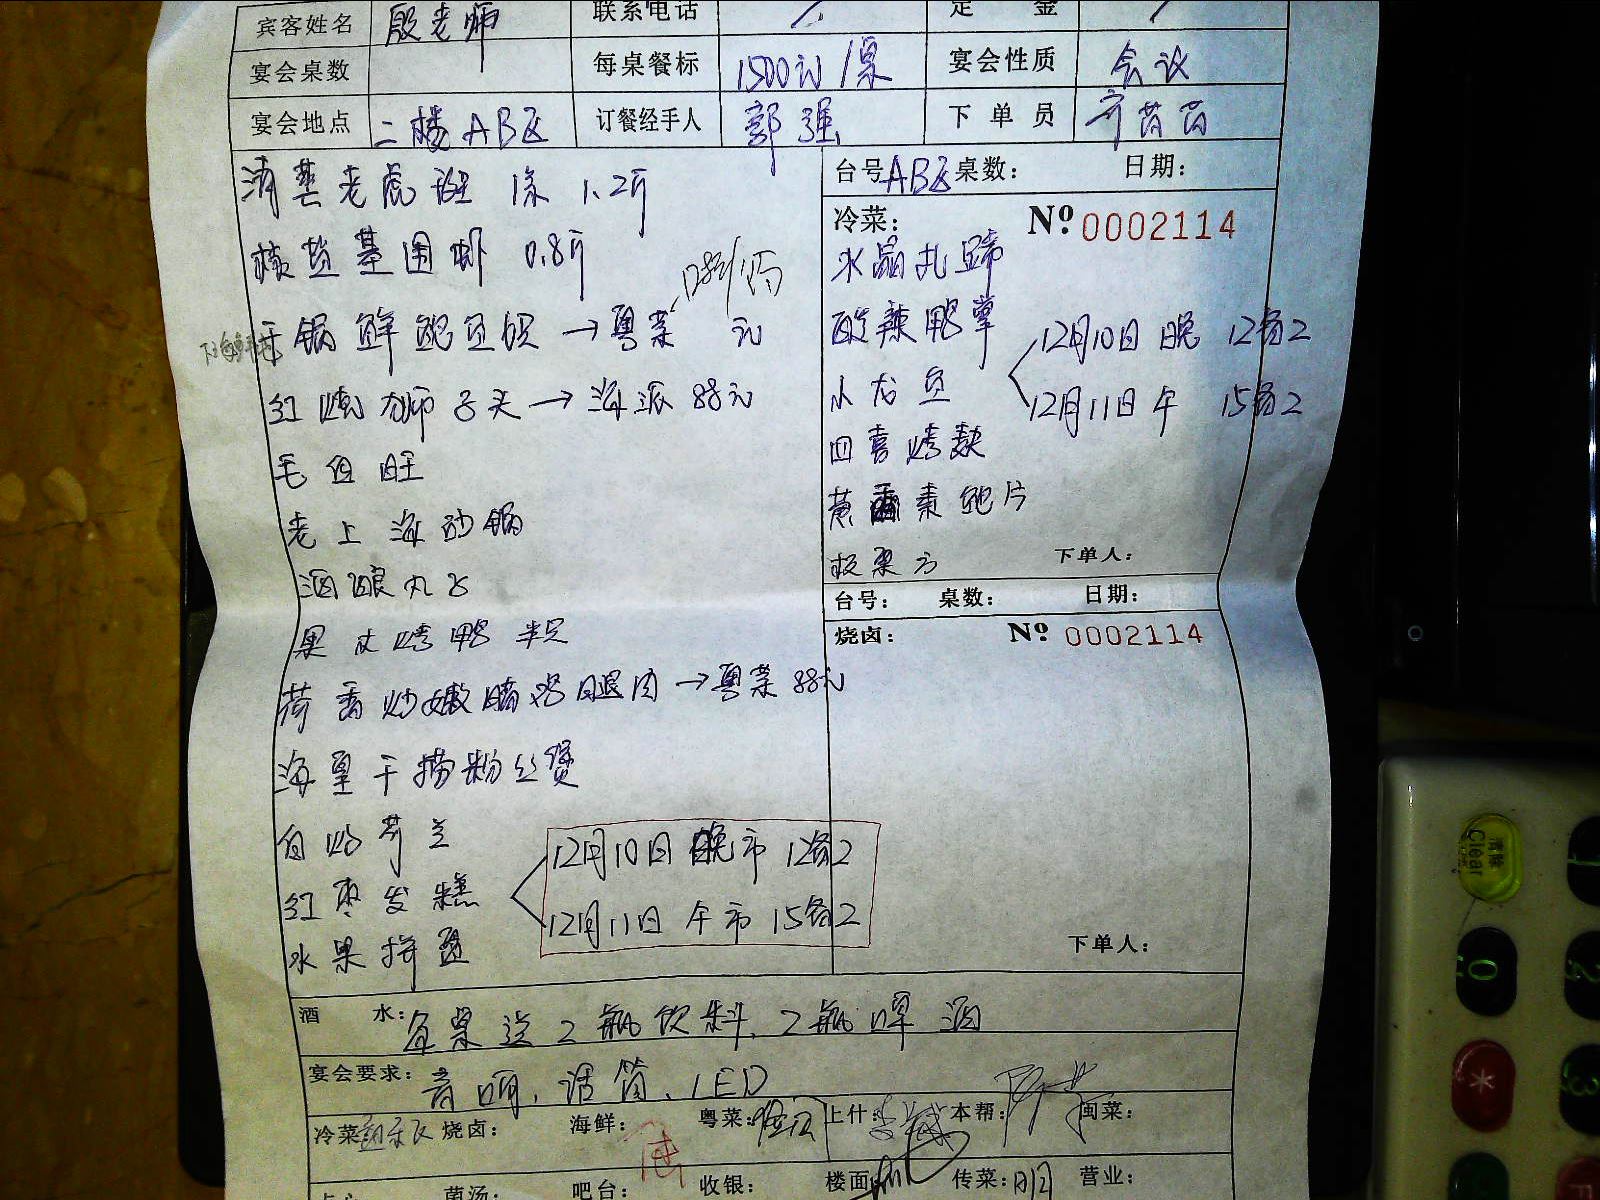 宾客姓名 殷老师 联系电话 定 金
宴会桌数 每桌餐标 1500元/桌 宴会性质 会议
宴会地点 二楼ABC区 订餐经手人 郭强 下单员 齐茵茵
台号: AB区 桌数: 日期:
冷菜: Nº 0002114
水晶扎蹄
酸辣鸭掌
小龙鱼
四喜烤麸
黄 素鲍片
板栗
12月10日 晚 12备2
12月11日 午 15备2
下单人:
台号: 桌数: 日期:
烧卤: Nº 0002114
下单人:
清蒸老虎斑 1条 1.2斤
基围虾 0.8斤
锅鲜鲍 → 粤菜 128元/份
红烧狮子头 → 海派 88元
毛血旺
老上海砂锅
酒酿丸子
果木烤鸭 半只
荷香炒嫩 鸡腿肉 → 粤菜 88元
海皇干捞粉丝煲
白灼芥兰
红枣发糕
水果拼盘
12月10日 晚市 12备2
12月11日 午市 15备2
酒 水: 每桌送2瓶饮料、2瓶啤酒
宴会要求: 音响、话筒、LED
冷菜: 烧卤: 海鲜: 粤菜: 上什: 本帮: 闽菜:
点心 菌汤: 吧台: 收银: 楼面: 传菜: 营业:
清除
Clear
0
2
*
3